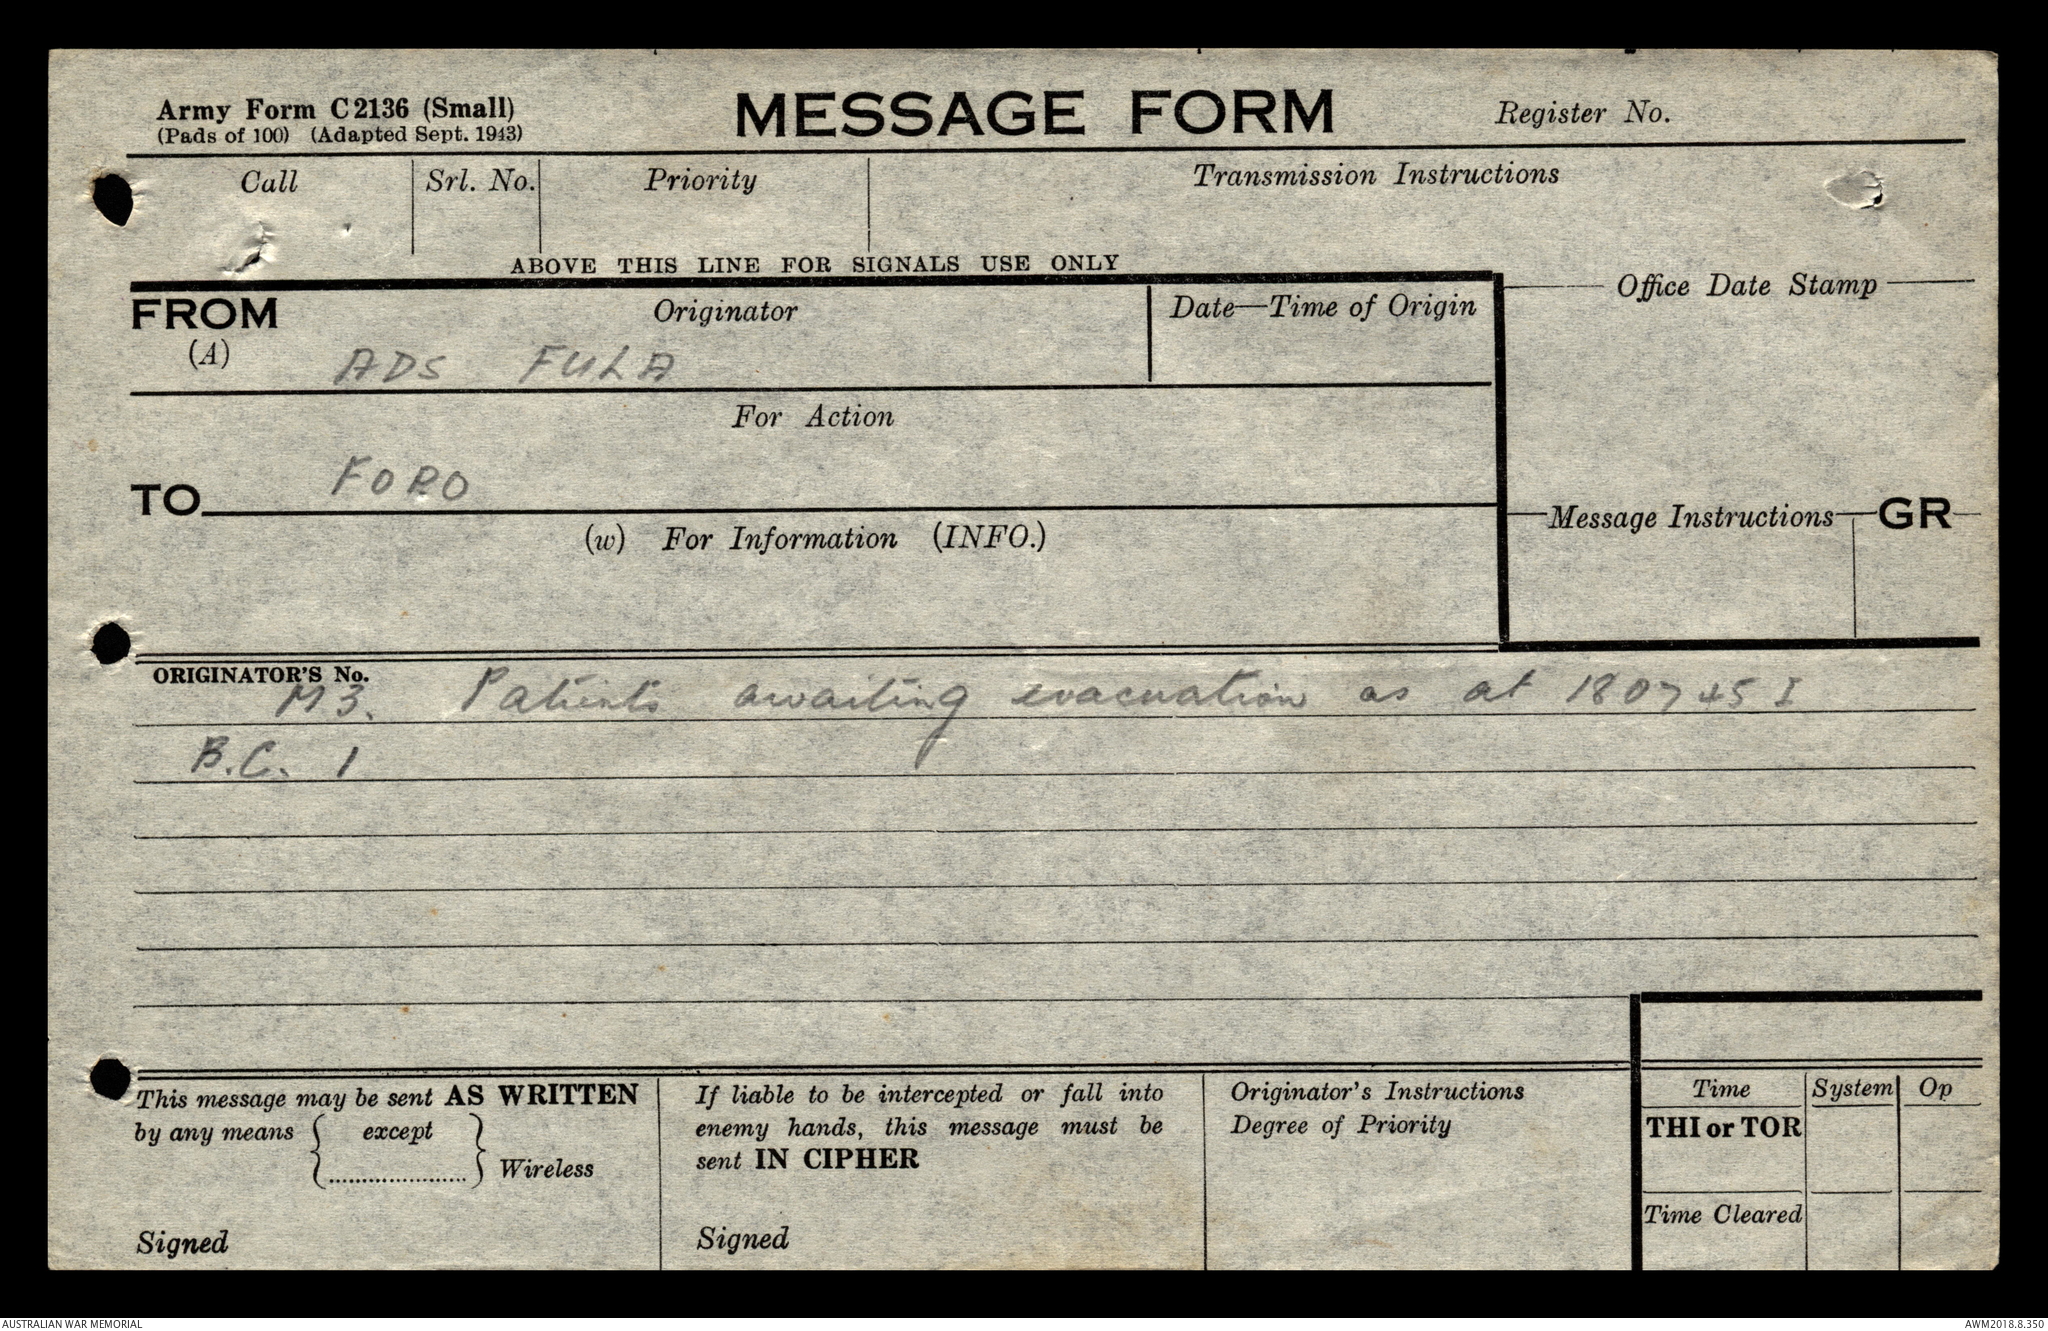 Army Form C2136 (Small)
(Pads of 100) (Adapted Sept. 1943)
MESSAGE FORM
Register No.
Call
Srl. No.
Priority
Transmission Instructions
ABOVE THIS LINE FOR SIGNALS USE ONLY
FROM
(A)
Originator
Date—Time of Origin
Office Date Stamp
ADS FULA
For Action
TO
FORO
(w) For Information (INFO.)
Message Instructions
GR
ORIGINATOR'S No.
M3. Patients awaiting evacuation as at 180745 I
B.C. 1
This message may be sent AS WRITTEN
by any means { except }
Wireless
Signed
If liable to be intercepted or fall into
enemy hands, this message must be
sent IN CIPHER
Signed
Originator's Instructions
Degree of Priority
Time
System
Op
THI or TOR
Time Cleared
AUSTRALIAN WAR MEMORIAL
AWM2018.8.350